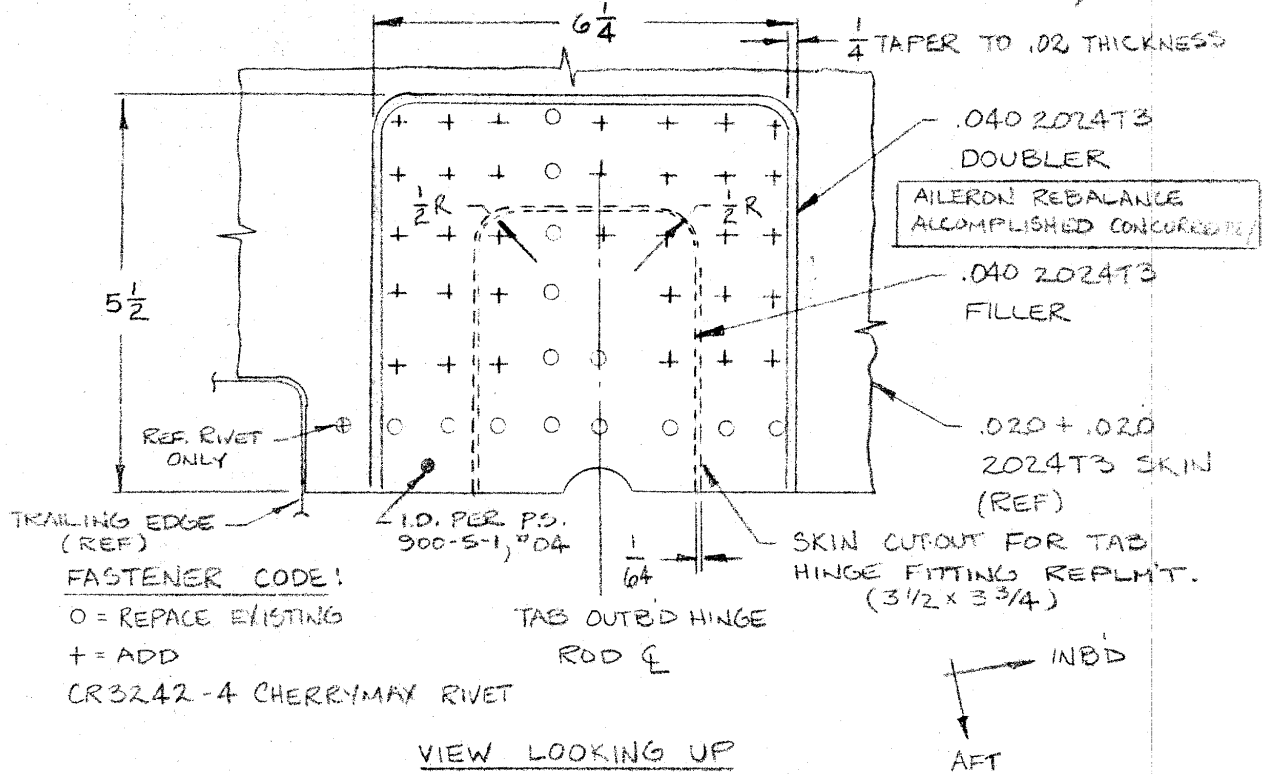 6 1/4
1/4 TAPER TO .02 THICKNESS
.040 2024T3
DOUBLER
AILERON REBALANCE
ACCOMPLISHED CONCURRENTLY
1/2 R
1/2 R
.040 2024T3
FILLER
5 1/2
REF. RIVET
ONLY
.020 + .020
2024T3 SKIN
(REF)
TRAILING EDGE
(REF)
I.D. PER P.S.
900-5-1, "04
1/64
SKIN CUTOUT FOR TAB
HINGE FITTING REPLM'T.
(3 1/2 x 3 3/4)
FASTENER CODE:
O = REPACE EXISTING
+ = ADD
CR3242-4 CHERRYMAX RIVET
TAB OUTB'D HINGE
ROD ℄
INB'D
AFT
VIEW LOOKING UP